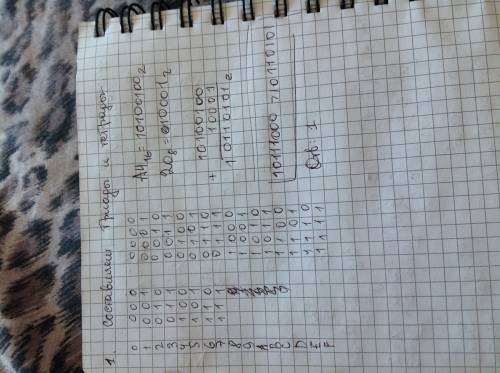 1. Составляем триады и тетрады
0 000 0000
1 001 0001
2 010 0010
3 011 0011
4 100 0100
5 101 0101
6 110 0110
7 111 0111
8 1000
9 1001
A 1010
B 1011
C 1100
D 1101
E 1110
F 1111
A4₁₆ = 10100100₂
= 010001₂
+ 10100100
10001
10110101₂
10111000 > 1011010
Отв: 1